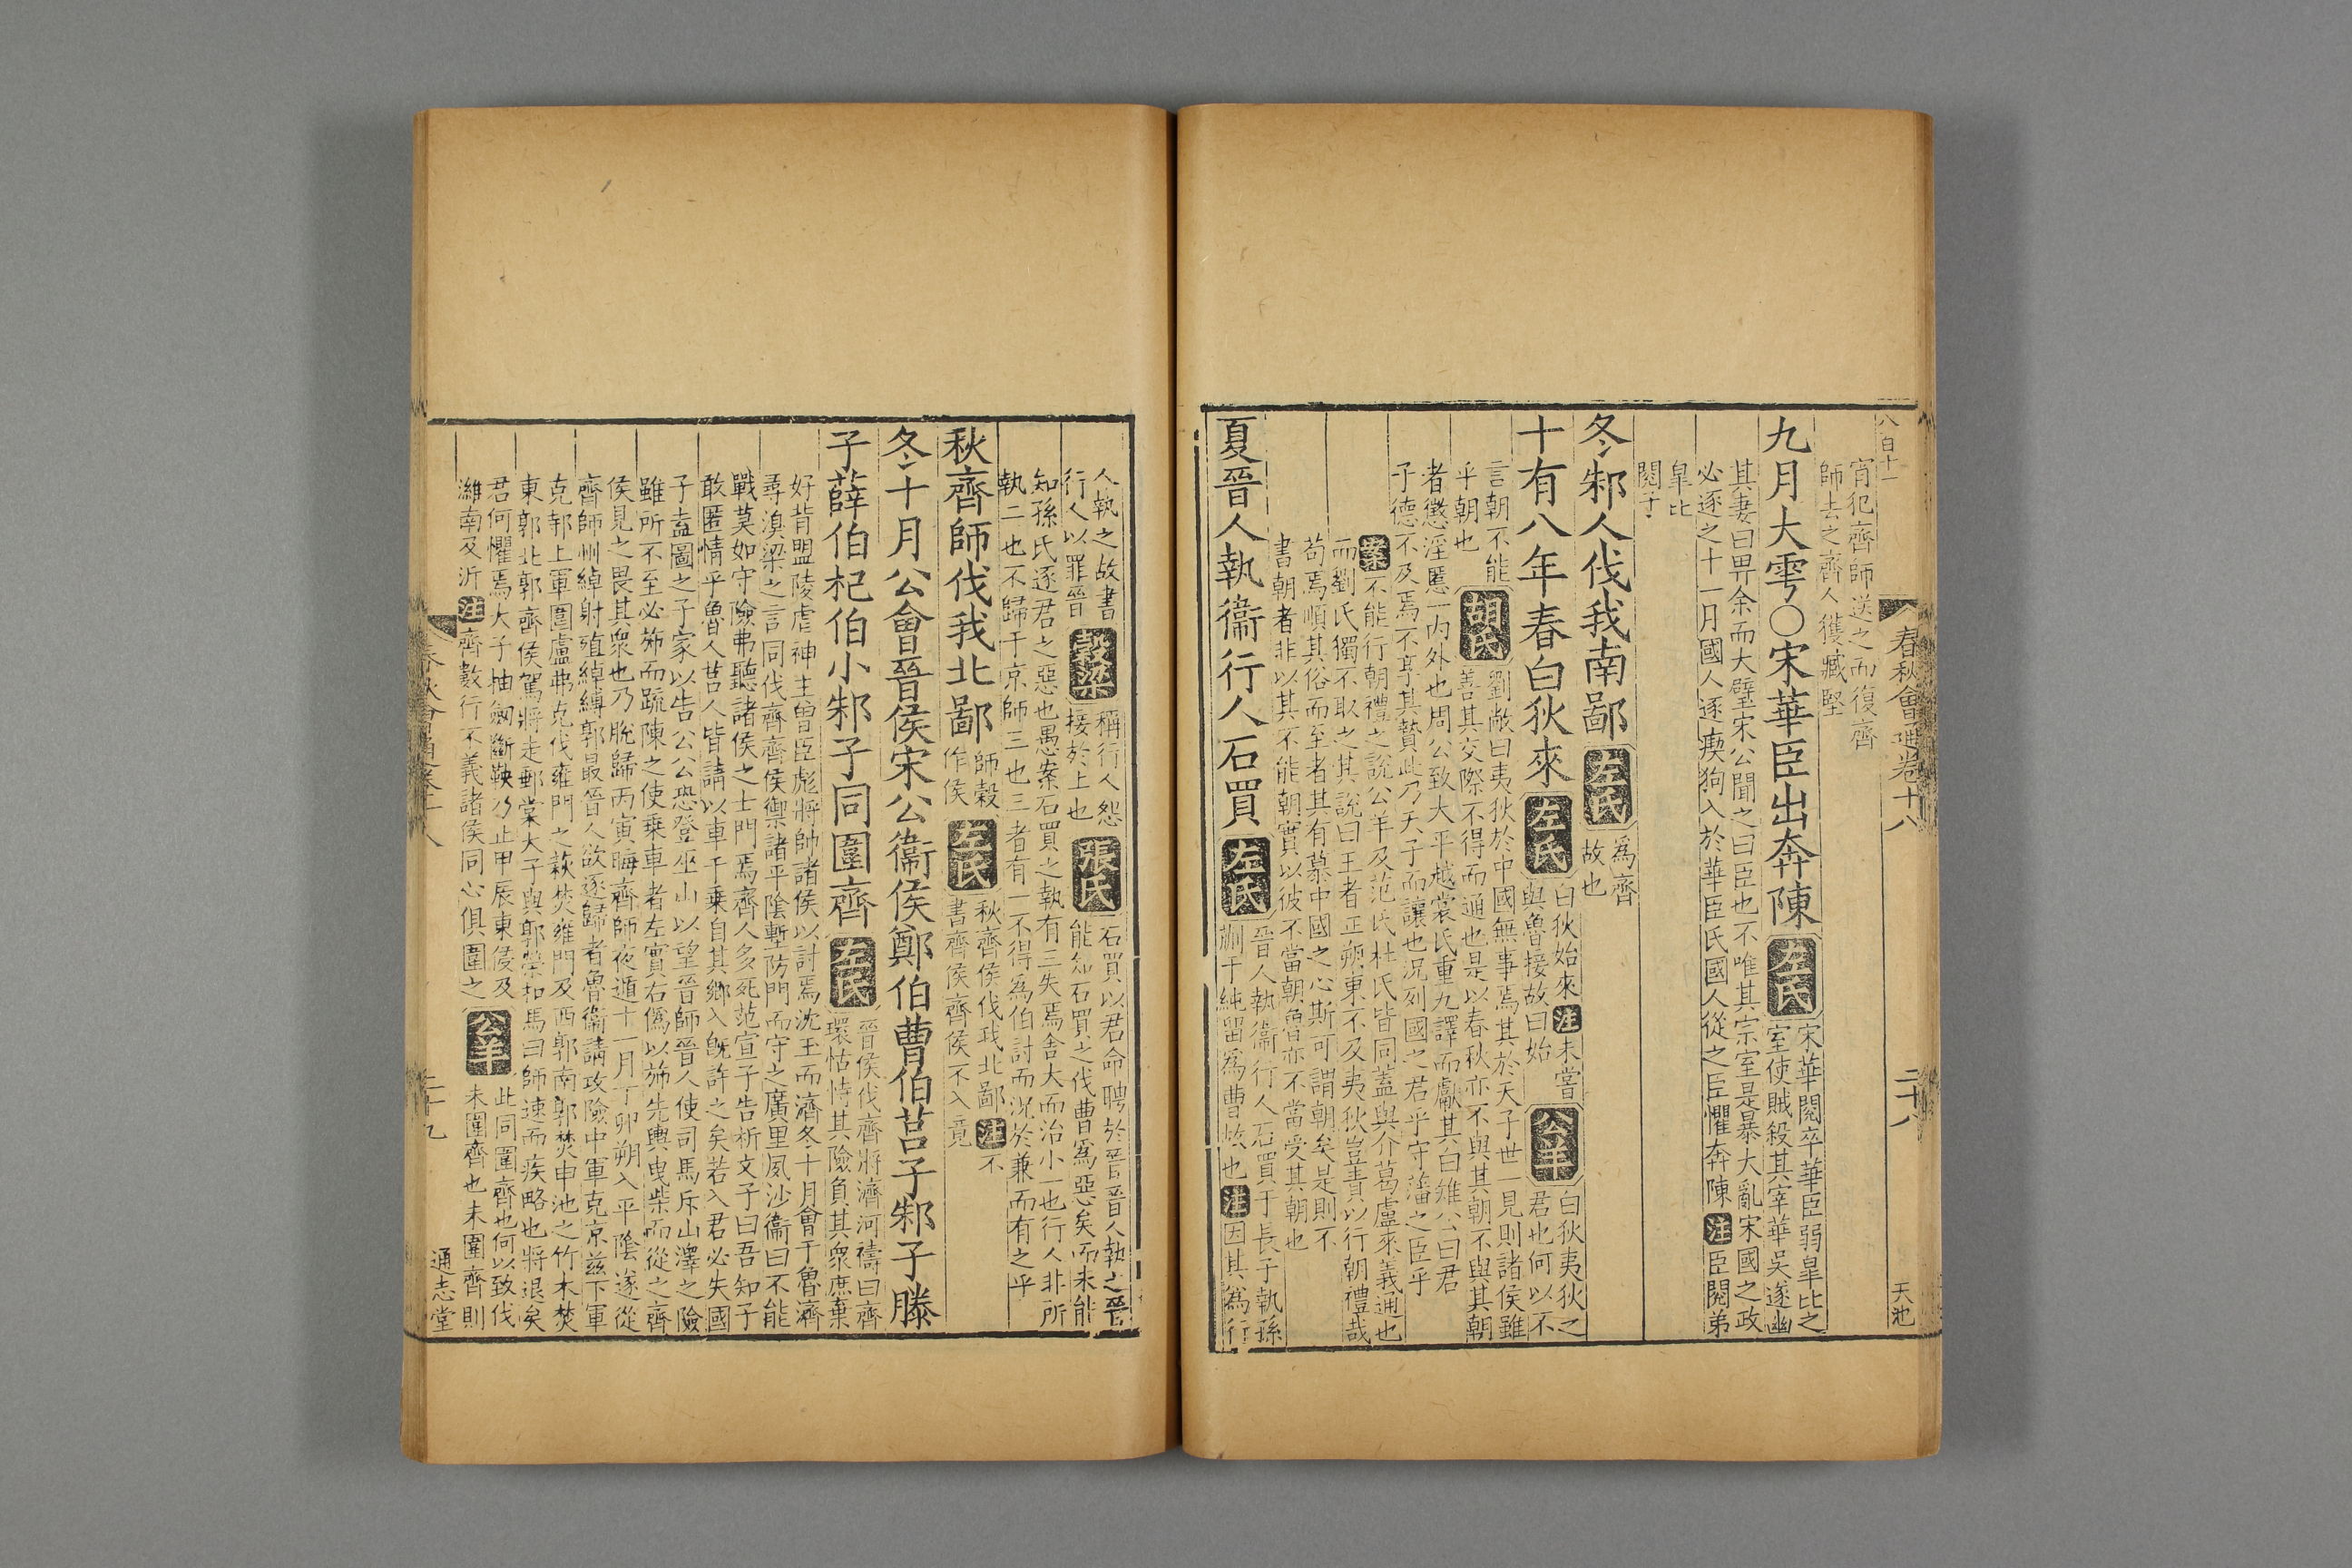 八百十一
春秋會通卷十八
二十八
天池
宵犯齊師送之而復齊
師去之齊人獲臧堅
九月大雩○宋華臣出奔陳
左氏
宋華閱卒華臣弱臯比之
室使賊殺其宰華吳遂幽
其妻曰畀余而大璧宋公聞之曰臣也不唯其宗室是暴大亂宋國之政
必逐之十一月國人逐瘈狗入於華臣氏國人從之臣懼奔陳注臣閱弟
臯比
閱子
冬邾人伐我南鄙
左氏
為齊
故也
十有八年春白狄來
左氏
白狄始來注未嘗
與魯接故曰始
公羊
白狄夷狄之
君也何以不
言朝不能
乎朝也
胡氏
劉敞曰夷狄於中國無事焉其於天子世一見則諸侯雖
善其交際不得而通也是以春秋亦不與其朝不與其朝
者懲淫慝一內外也周公致大平越裳氏重九譯而獻其白雉公曰君
子德不及焉不享其贄此乃天子而讓也況列國之君乎守藩之臣乎
案不能行朝禮之說公羊及范氏杜氏皆同蓋與介葛盧來義通也
而劉氏獨不取之其說曰王者正朔東不及夷狄豈責以行朝禮哉
苟焉順其俗而至者其有慕中國之心斯可謂朝矣是則不
書朝者非以其不能朝實以彼不當朝魯亦不當受其朝也
夏晉人執衞行人石買
左氏
晉人執衞行人石買于長子執孫
蒯于純留為曹故也注因其為行
人執之故書
行人以罪晉
穀梁
稱行人怨
接於上也
張氏
石買以君命聘於晉晉人執之晉
能知石買之伐曹為惡矣而未能
知孫氏逐君之惡也愚案石買之執有三失焉舍大而治小一也行人非所
執二也不歸于京師三也三者有一不得為伯討而況於兼而有之乎
秋齊師伐我北鄙
師榖
作侯
左氏
秋齊侯伐我北鄙注不
書齊侯齊侯不入竟
冬十月公會晉侯宋公衞侯鄭伯曹伯莒子邾子滕
子薛伯杞伯小邾子同圍齊
左氏
晉侯伐齊將濟河禱曰齊
環怙恃其險負其衆庶棄
好背盟陵虐神主曾臣彪將帥諸侯以討焉沈玉而濟冬十月會于魯濟
尋湨梁之言同伐齊齊侯禦諸平陰塹防門而守之廣里夙沙衞曰不能
戰莫如守險弗聽諸侯之士門焉齊人多死范宣子告析文子曰吾知子
敢匿情乎魯人莒人皆請以車千乗自其鄉入旣許之矣若入君必失國
子盍圖之子家以告公公恐登巫山以望晉師晉人使司馬斥山澤之險
雖所不至必斾而疏陳之使乗車者左實右僞以斾先輿曳柴而從之齊
侯見之畏其衆也乃脫歸丙寅晦齊師夜遁十一月丁卯朔入平陰遂從
齊師州綽射殖綽縛郭最晉人欲逐歸者魯衞請攻險中軍克京兹下軍
克邿上軍圍盧弗克伐雍門之萩焚雍門及西郭南郭焚申池之竹木焚
東郭北郭齊侯駕將走郵棠大子與郭榮扣馬曰師速而疾略也將退矣
君何懼焉大子抽劒斷鞅乃止甲辰東侵及
濰南及沂注齊數行不義諸侯同心俱圍之
公羊
此同圍齊也何以致伐
未圍齊也未圍齊則
春秋會通卷十八
二十九
通志堂